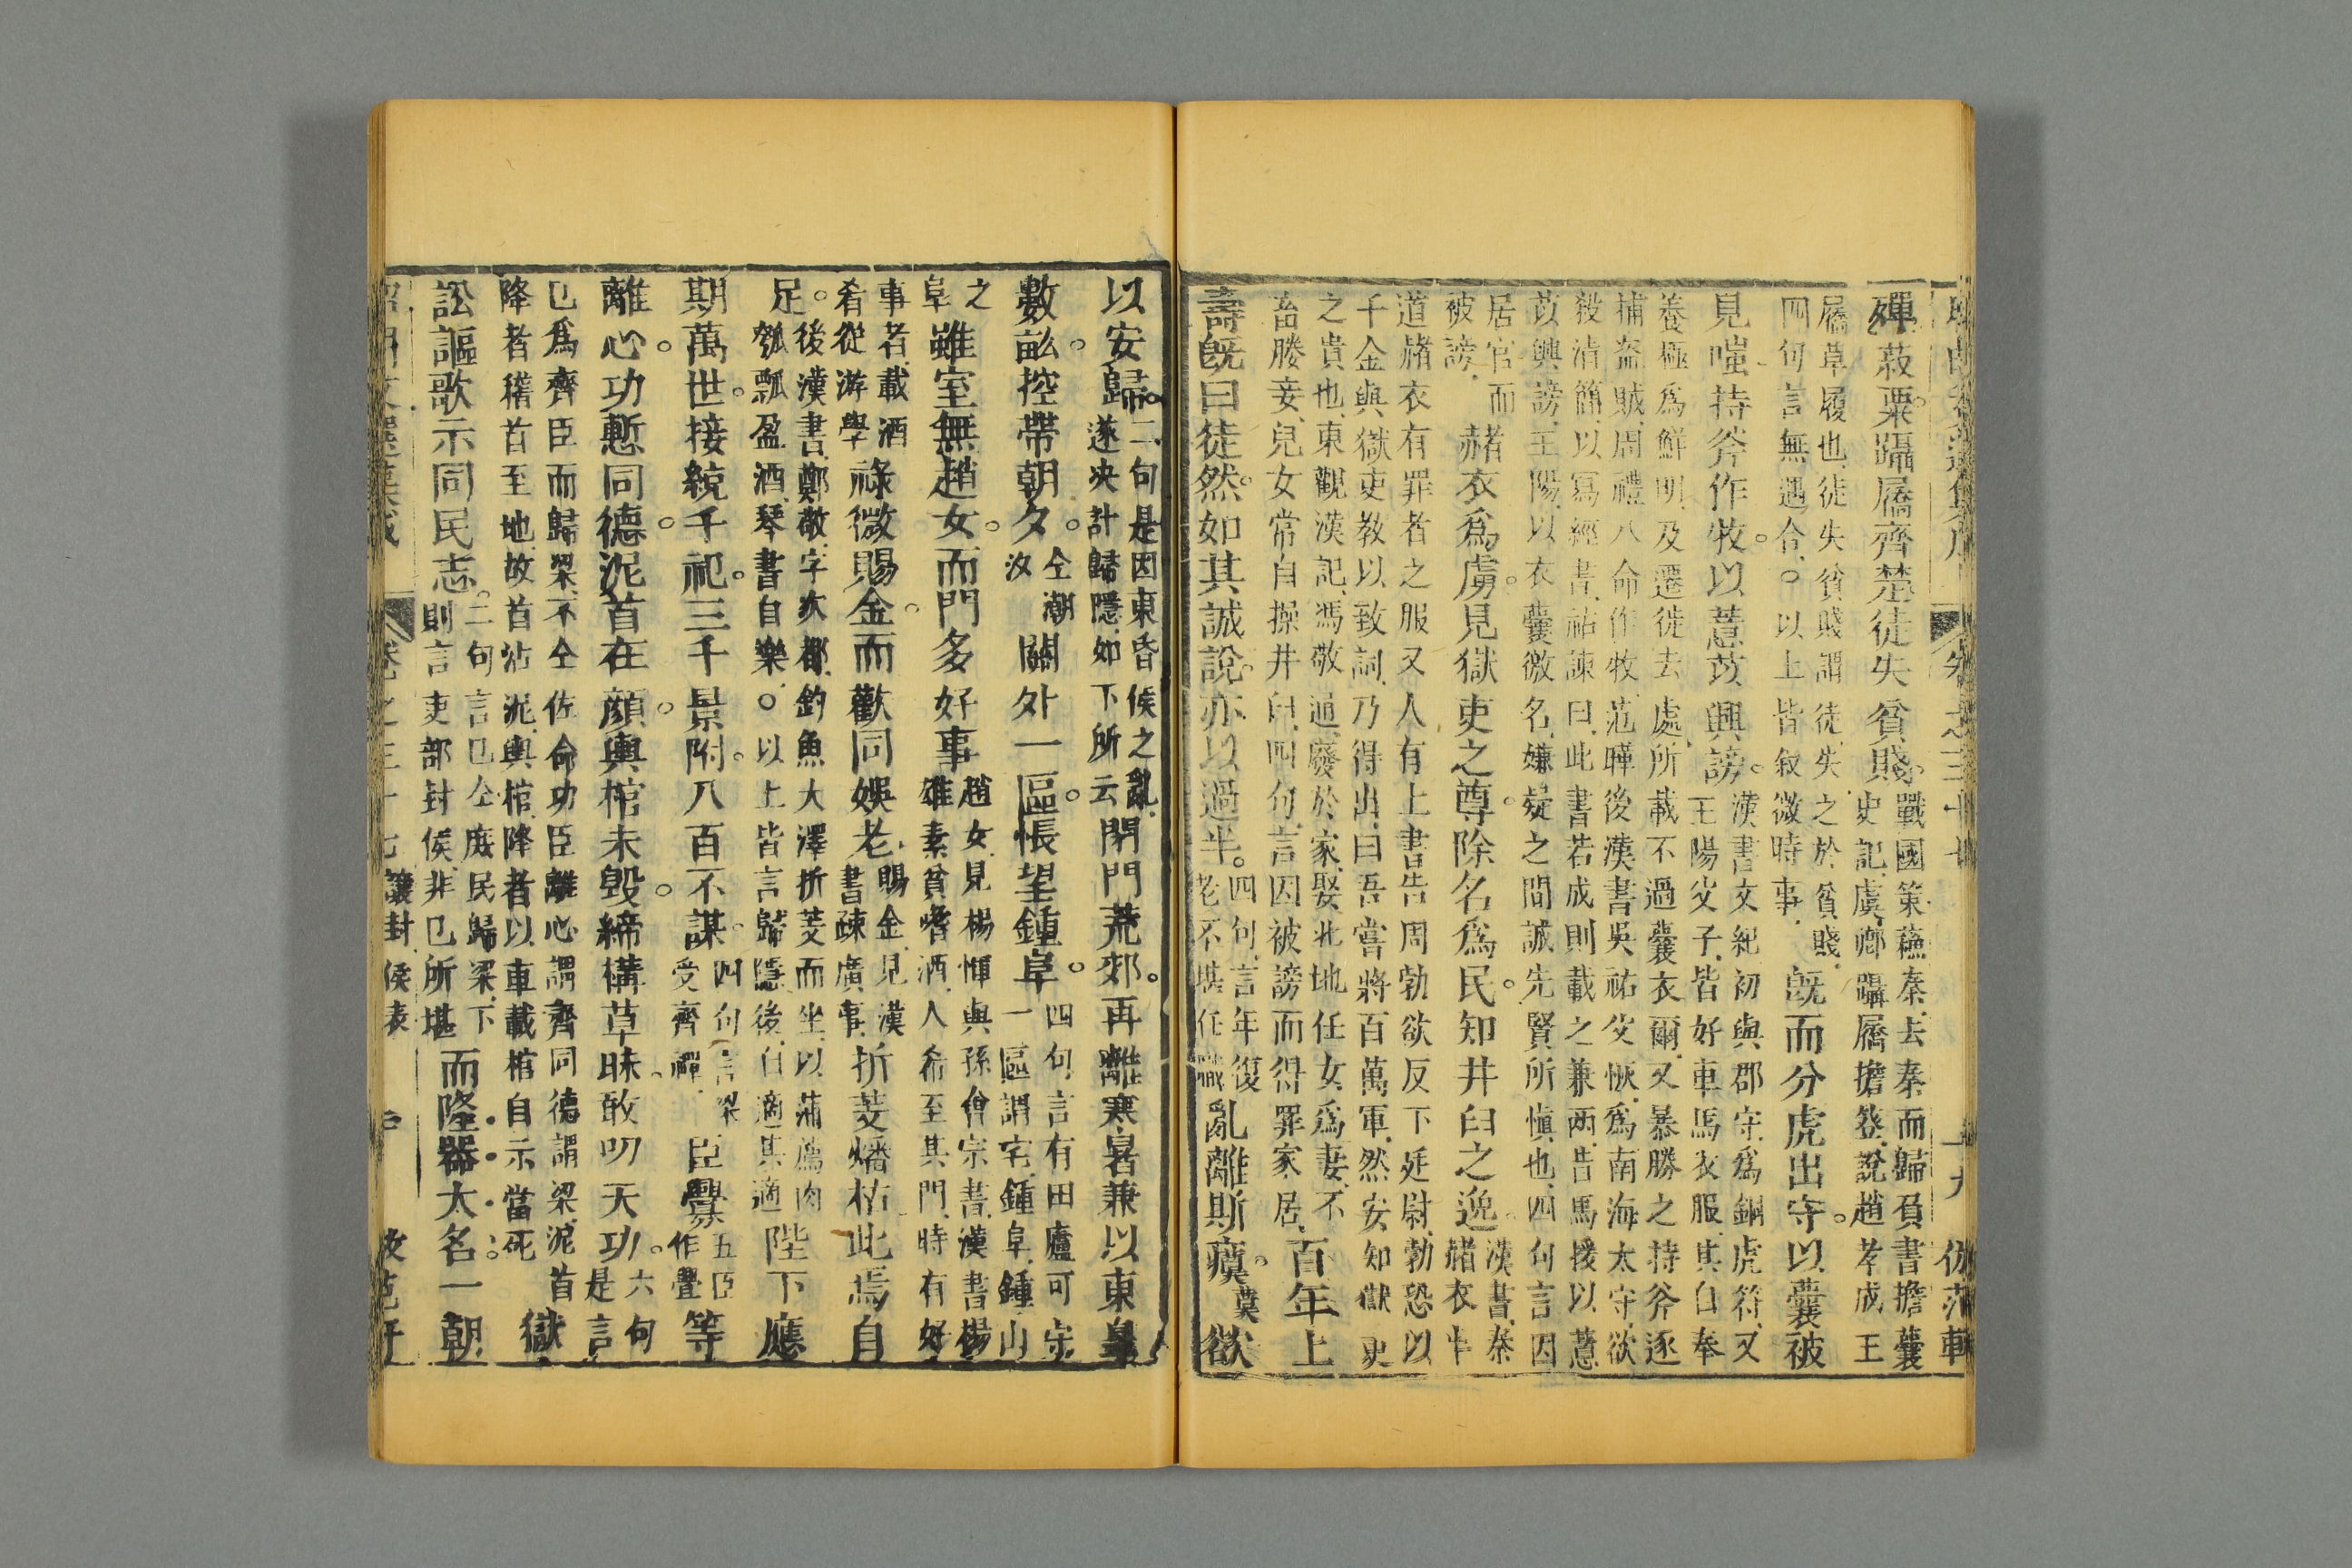 殫菽粟。躡屩齊楚徒失貧賤。戰國策蘇秦去秦而歸負書擔囊
史記虞卿躡屩擔簦說趙孝成王
屩草履也徒失貧賤謂徒失之於貧賤
四句言無遇合○以上皆叙微時事
既而分虎出守。以囊被
見嗤持斧作牧。以薏苡興謗。漢書文紀初與郡守爲銅虎符又
王陽父子皆好車馬衣服其自奉
養極爲鮮明及遷徙去處所載不過囊衣爾又暴勝之持斧逐
捕盜賊周禮八命作牧范曄後漢書吳祐父恢爲南海太守欲
殺淸簡以寫經書祐諫曰此書若成則載之兼兩昔馬援以薏
苡興謗王陽以衣囊徼名嫌疑之間誠先賢所愼也四句言因
居官而
被謗
赭衣爲虜。見獄吏之尊。除名爲民。知井臼之逸。漢書秦
赭衣半
道赭衣有罪者之服又人有上書告周勃欲反下廷尉勃恐以
千金與獄吏教以致詞乃得出曰吾嘗將百萬軍然安知獄吏
之貴也東觀漢記馮敬通廢於家娶北地任女爲妻不
畜媵妾兒女常自操井臼四句言因被謗而得罪家居
百年上
壽既曰徒然。如其誠說。亦以過半。四句言年復
老不堪任職
亂離斯瘼。莫
欲
以安歸。二句是因東昏侯之亂
遂决計歸隱如下所云
閉門荒郊。再離寒暑兼以東皋
數畝。控帶朝夕。仝潮
汐
關外一區。悵望鍾阜。四句言有田廬可安
一區謂宅鍾阜鍾山
之
阜
雖室無趙女。而門多好事趙女見楊惲與孫會宗書漢書楊
雄素貧嗜酒人希至其門時有好
事者載酒
肴從游學
祿微賜金。而歡同娛老賜金見漢
書疎廣事
折芰燔枯此焉自
足。後漢書鄭敬字次都釣魚大澤折芰而坐以蒲薦肉
瓠瓢盈酒琴書自樂○以上皆言歸隱後自適其適
陛下應
期萬世。接統千祀。三千景附。八百不謀。四句言梁
受齊禪
臣釁五臣
作舋
等
離心。功慙同德。泥首在顏。輿棺未毀。締構草昧。敢叨天功。六句
是言
已爲齊臣而歸梁不仝佐命功臣離心謂齊同德謂梁泥首
降者稽首至地故首沾泥輿棺降者以車載棺自示當死
獄
訟謳歌示同民志。二句言已仝庶民歸梁下
則言吏部封侯非已所堪
而隆器大名。一朝